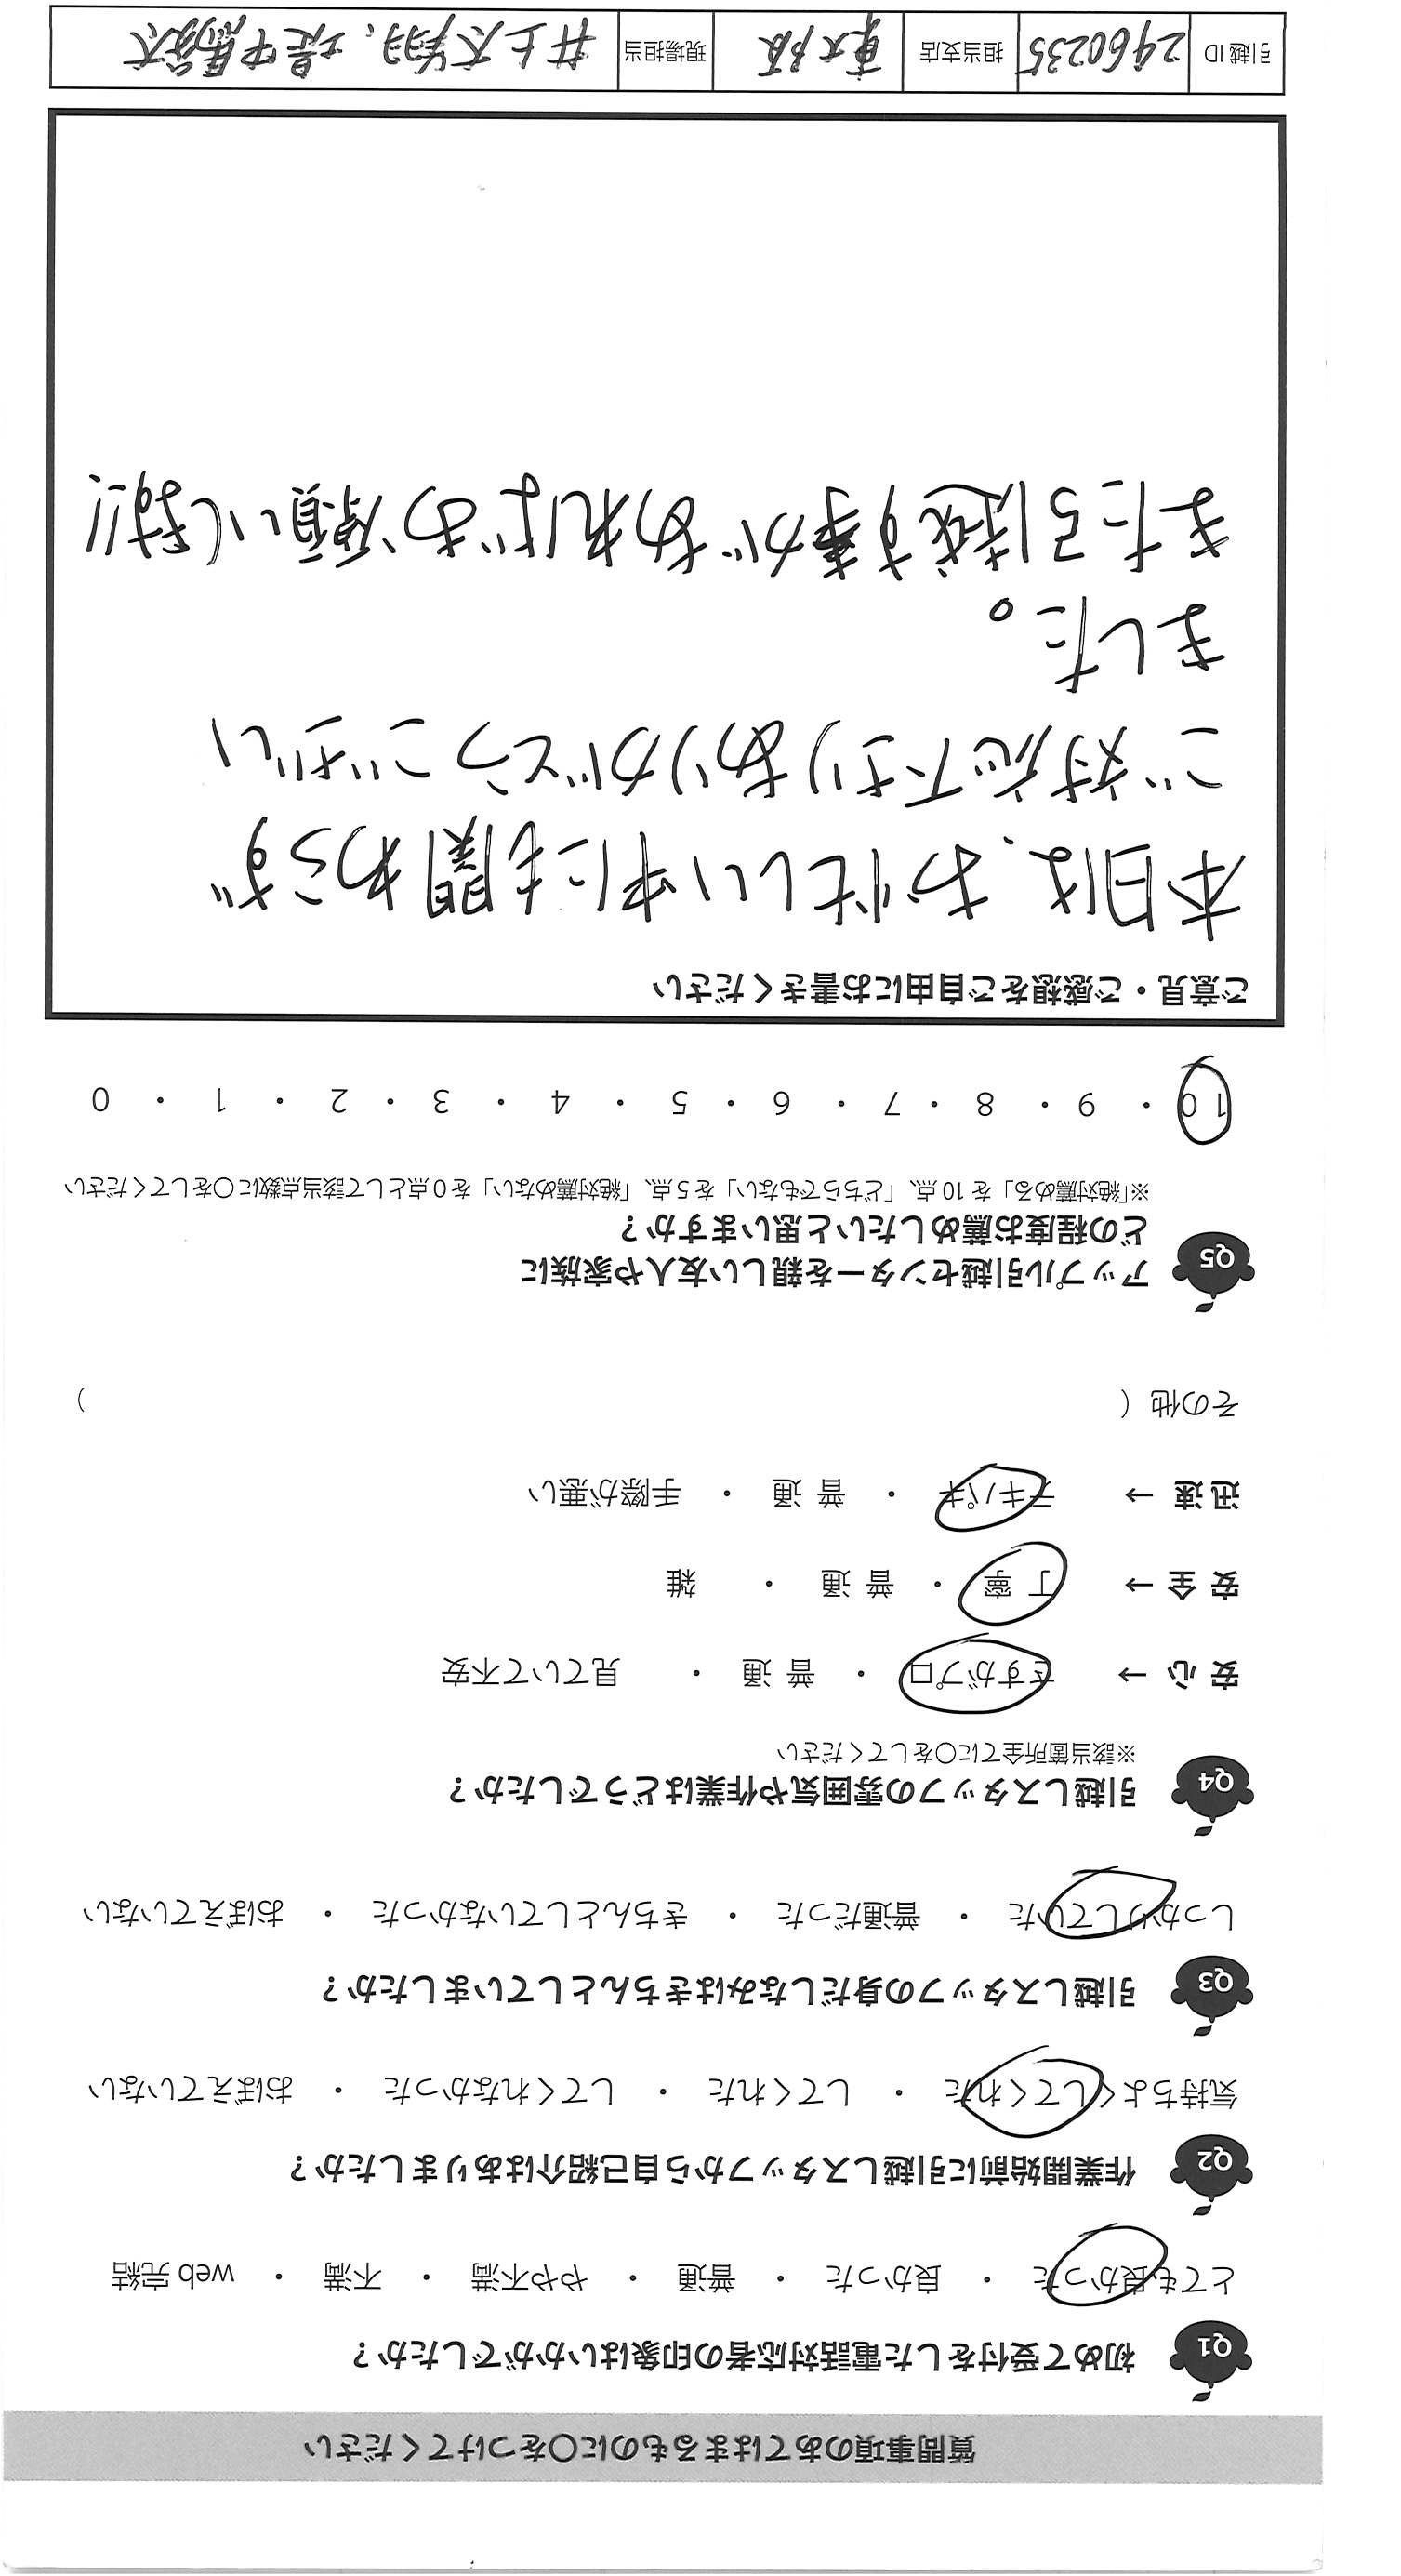 質問事項のあてはまるものに○をつけてください
Q1 初めて受付をした電話対応者の印象はいかがでしたか？
とても良かった ・ 良かった ・ 普通 ・ やや不満 ・ 不満 ・ web 完結
Q2 作業開始前に引越しスタッフから自己紹介はありましたか？
気持ちよくしてくれた ・ してくれた ・ してくれなかった ・ おぼえていない
Q3 引越しスタッフの身だしなみはきちんとしていましたか？
しっかりしていた ・ 普通だった ・ きちんとしていなかった ・ おぼえていない
Q4 引越しスタッフの雰囲気や作業はどうでしたか？
※該当箇所全てに○をしてください
安 心 → さすがプロ ・ 普 通 ・ 見ていて不安
安 全 → 丁 寧 ・ 普 通 ・ 雑
迅 速 → テキパキ ・ 普 通 ・ 手際が悪い
その他（ ）
Q5 アップル引越センターを親しい友人や家族に
どの程度お薦めしたいと思いますか？
※「絶対薦める」を 10 点、「どちらでもない」を 5 点、「絶対薦めない」を 0 点として該当点数に○をしてください
10 ・ 9 ・ 8 ・ 7 ・ 6 ・ 5 ・ 4 ・ 3 ・ 2 ・ 1 ・ 0
ご意見・ご感想をご自由にお書きください
本日は、お忙しい中にも関わらず
ご対応下さりありがとうござい
ました。
また引越す事があればお願いします!!
引越 ID 2460235 担当支店 東大阪 現場担当 井上太翔、堤